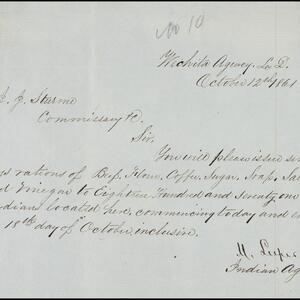 No 10
Wichita Agency, L.D.
October 12th 1861
J. J. Sturm
Commissary &c.
Sir,
You will please issue
rations of Beef, Flour, Coffee, Sugar, Soap,
Vinegar to Eighteen Hundred and seventy one
Indians located here, commencing today and
18th day of October, inclusive.
M. Leeper
Indian Ag